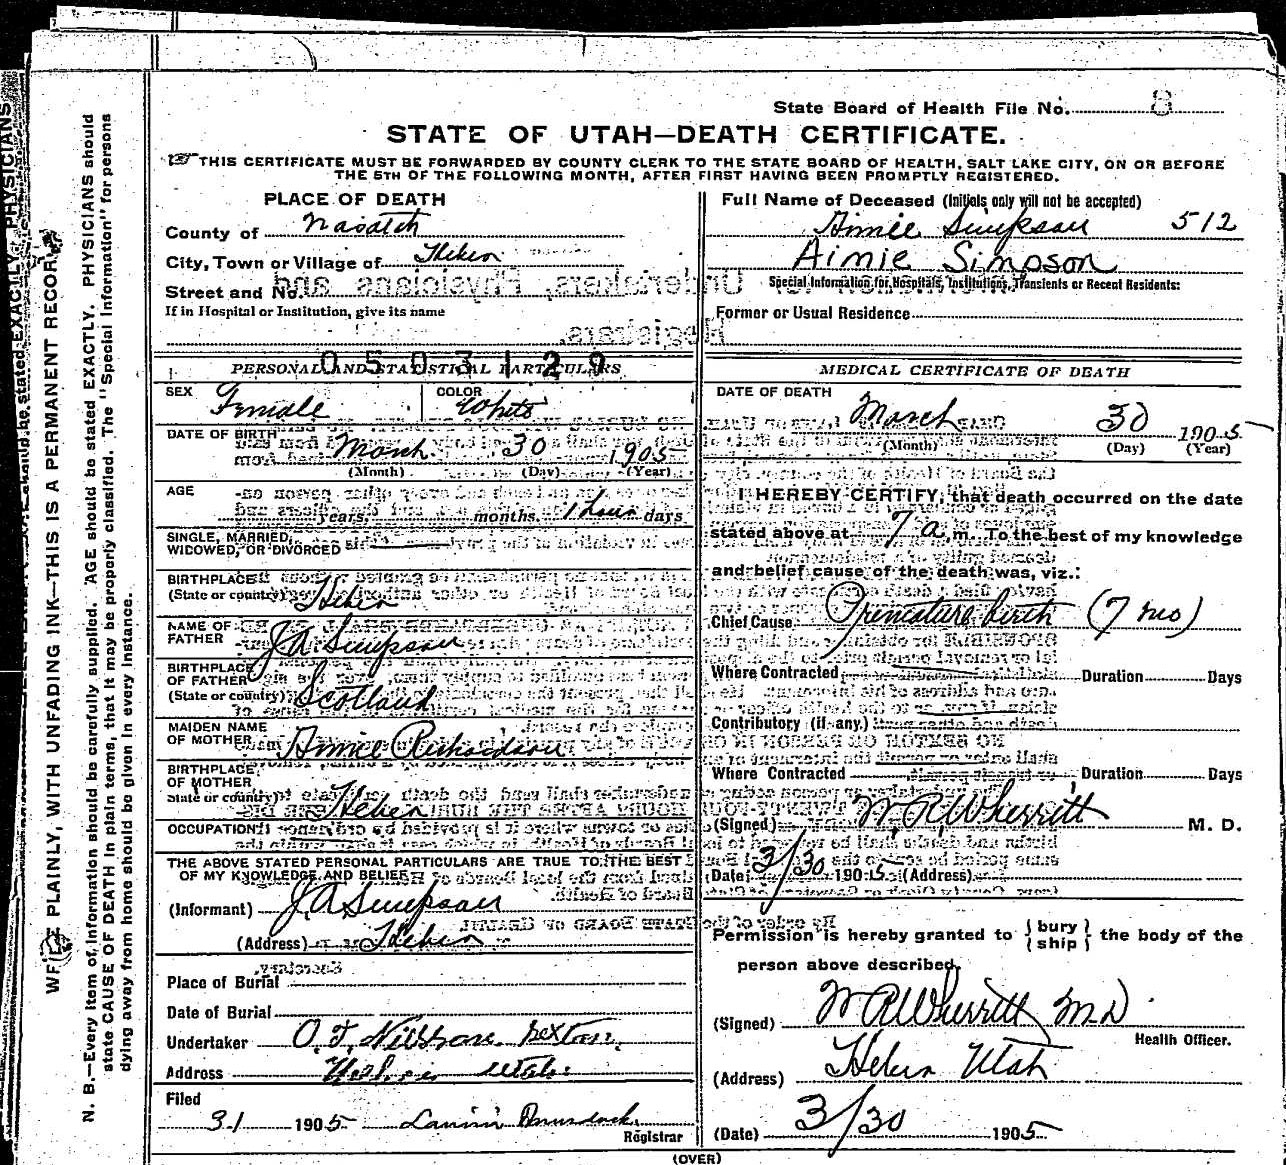 State Board of Health File No. 8
STATE OF UTAH—DEATH CERTIFICATE.
THIS CERTIFICATE MUST BE FORWARDED BY COUNTY CLERK TO THE STATE BOARD OF HEALTH, SALT LAKE CITY, ON OR BEFORE
THE 5TH OF THE FOLLOWING MONTH, AFTER FIRST HAVING BEEN PROMPTLY REGISTERED.
PLACE OF DEATH
County of Wasatch
City, Town or Village of Heber
Street and No.
If in Hospital or Institution, give its name
0503129
PERSONAL AND STATISTICAL PARTICULARS
SEX Female COLOR White
DATE OF BIRTH March 30 1905
(Month) (Day) (Year)
AGE
years, months. 1 hour days
SINGLE, MARRIED,
WIDOWED, OR DIVORCED
BIRTHPLACE
(State or country) Heber
NAME OF
FATHER J A Simpson
BIRTHPLACE
OF FATHER
(State or country) Scotland
MAIDEN NAME
OF MOTHER Annie Richardson
BIRTHPLACE
OF MOTHER
State or country) Heber
OCCUPATION
THE ABOVE STATED PERSONAL PARTICULARS ARE TRUE TO THE BEST
OF MY KNOWLEDGE AND BELIEF
(Informant) J A Simpson
(Address) Heber
Place of Burial
Date of Burial
Undertaker O. F. sexton.
Address Heber Utah.
Filed
31 1905
Registrar
Full Name of Deceased (Initials only will not be accepted)
Aimie Simpson 512
Aimie Simpson
Special Information for Hospitals, Institutions, Transients or Recent Residents:
Former or Usual Residence
MEDICAL CERTIFICATE OF DEATH
DATE OF DEATH
March 30 1905
(Month) (Day) (Year)
I HEREBY CERTIFY, that death occurred on the date
stated above at 7 a. m. To the best of my knowledge
and belief cause of the death was, viz.:
Chief Cause Premature birth (7 mo)
Where Contracted Duration Days
Contributory (if any)
Where Contracted Duration Days
(Signed) W. R. Wherritt M. D.
(Date) 3/30 1905 (Address)
Permission is hereby granted to { bury / ship } the body of the
person above described.
(Signed) W R Wherritt M.D.
Health Officer.
(Address) Heber Utah
(Date) 3/30 1905
(OVER)
PLAINLY, WITH UNFADING INK—THIS IS A PERMANENT RECORD
N. B.—Every item of information should be carefully supplied. AGE should be stated EXACTLY. PHYSICIANS should
state CAUSE OF DEATH in plain terms, that it may be properly classified. The "Special Information" for persons
dying away from home should be given in every instance.